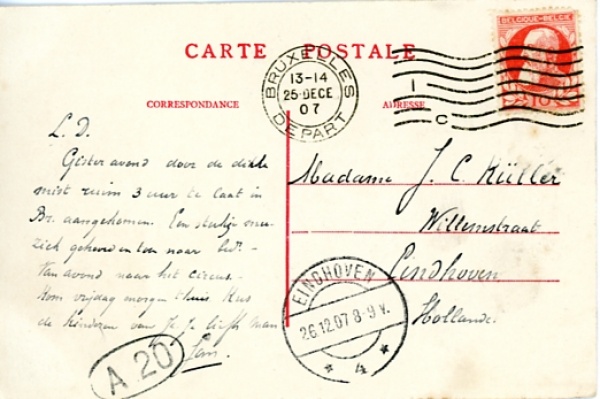 BELGIQUE-BELGIË
10
CARTE POSTALE
BRUXELLES
13-14
25 DECE
07
DEPART
1
C
CORRESPONDANCE
ADRESSE
L. D.
Gisteravond door de dikke
mist ruim 3 uur te laat in
Br. aangekomen. Een stukje mu-
ziek gehoord en toen naar bed. -
Van avond naar het circus. -
Kom vrijdag morgen thuis Kus
de kinderen van je je liefh. man
A 20
Madame J. C. Küller
Willemstraat
Eindhoven
Hollande.
EINDHOVEN
26.12.07 8-9 V.
* 4 *